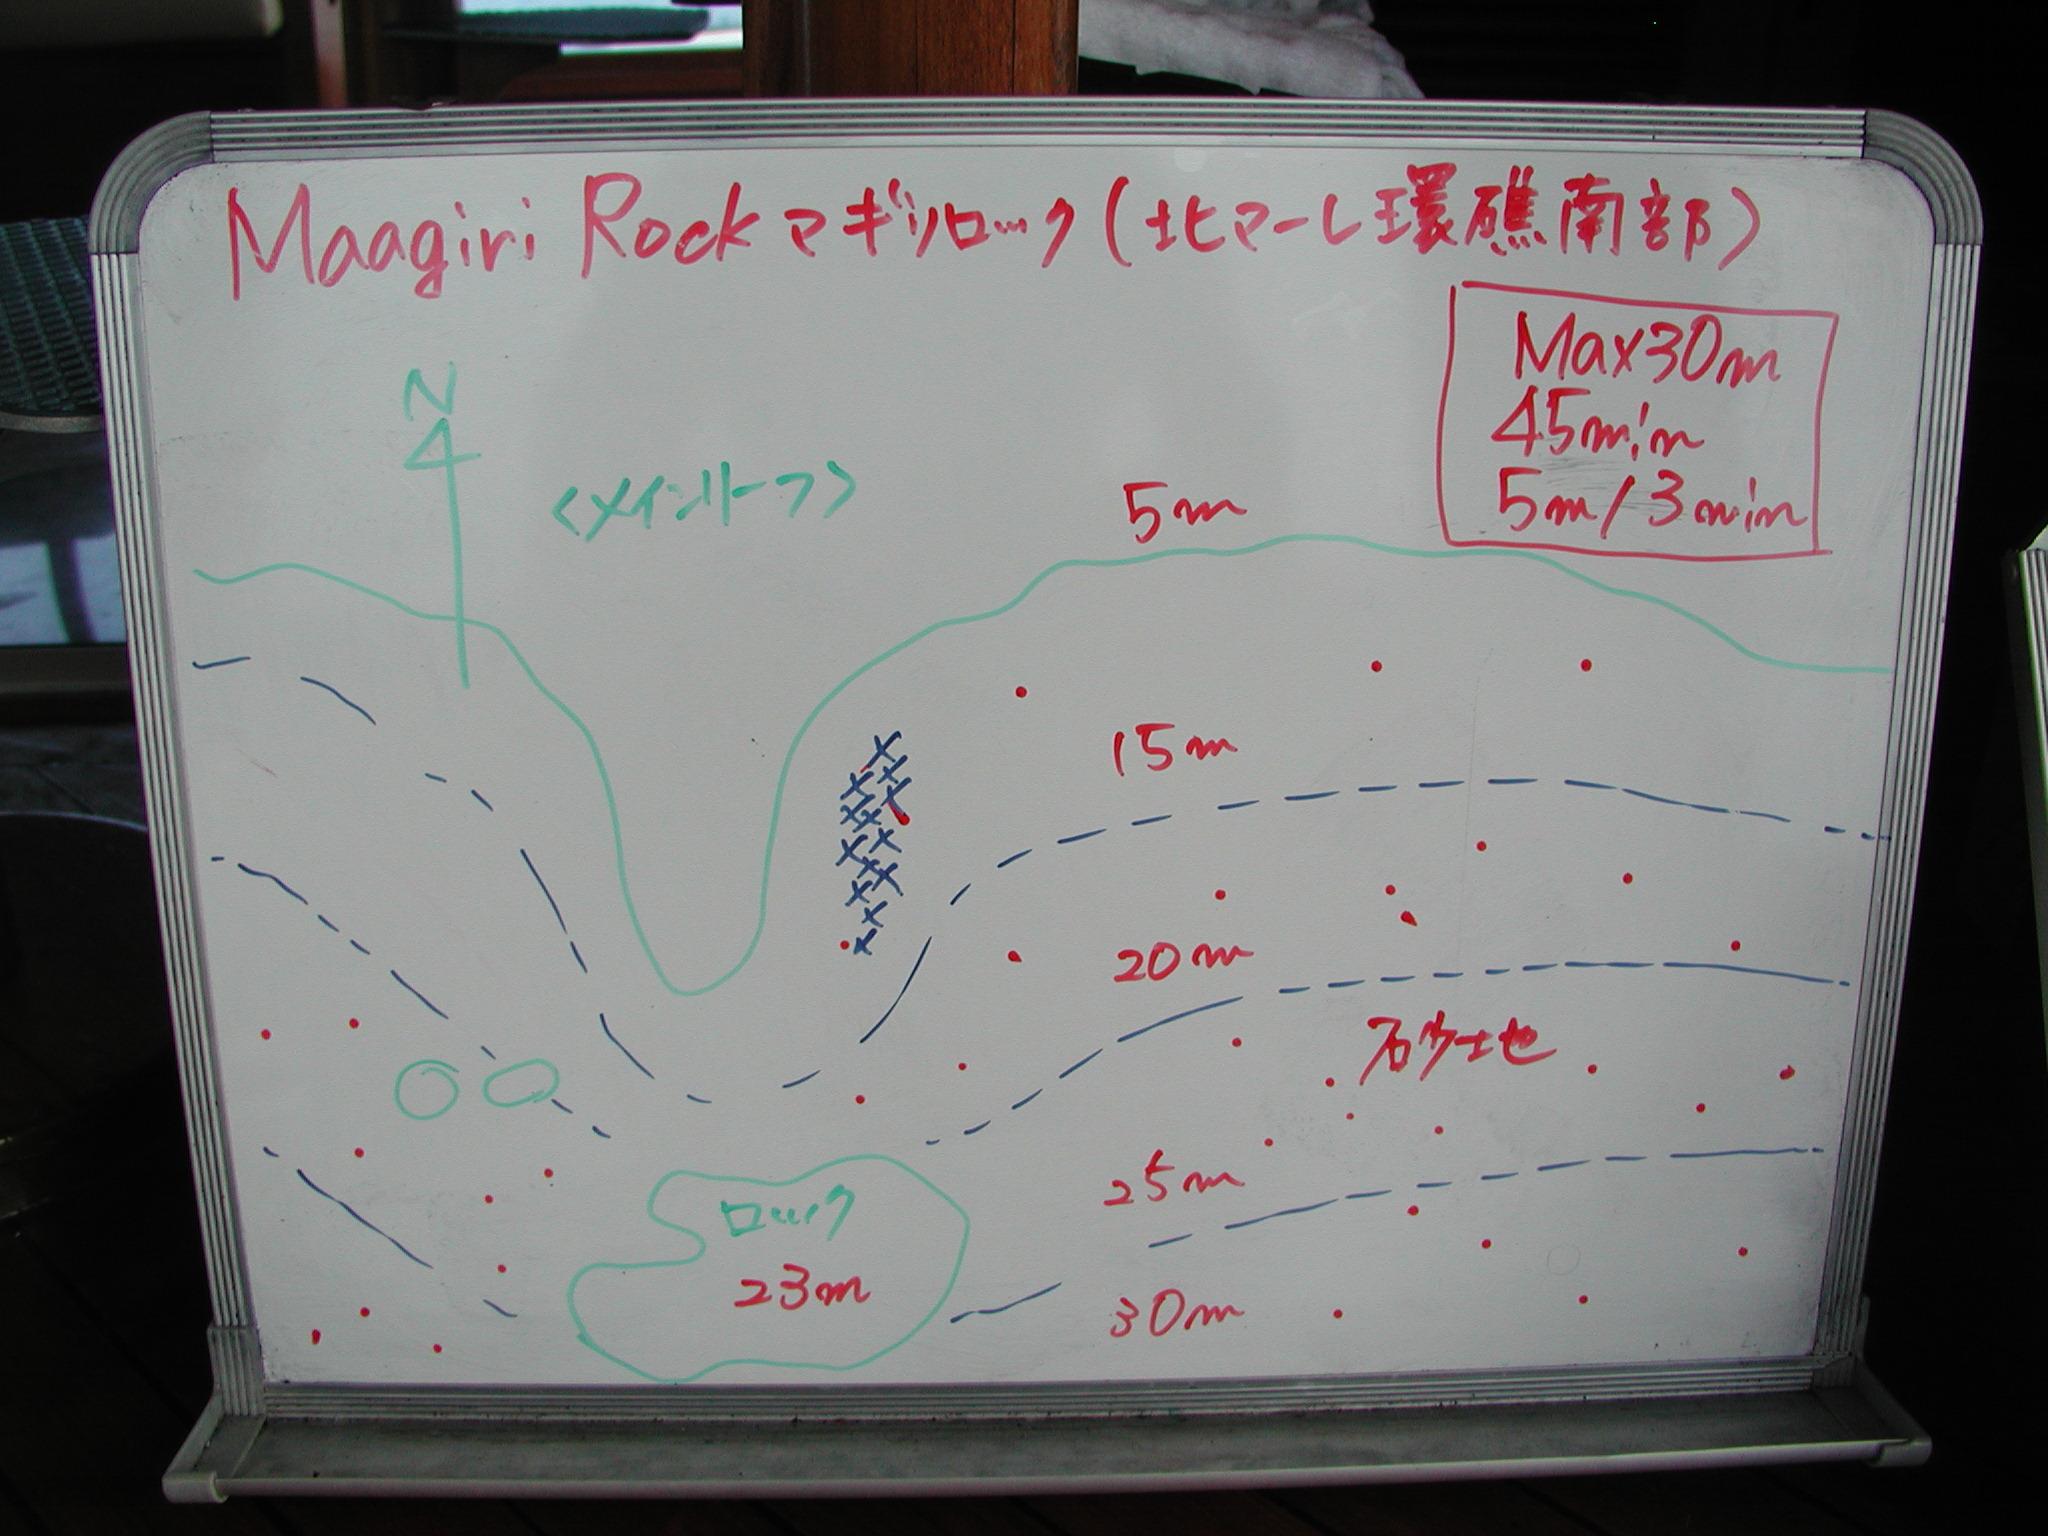 Maagiri Rock マギリロック(北マーレ環礁南部)
Max30m
45min
5m/3min
N
<メインリーフ>
5m
15m
20m
砂地
25m
ロック
23m
30m